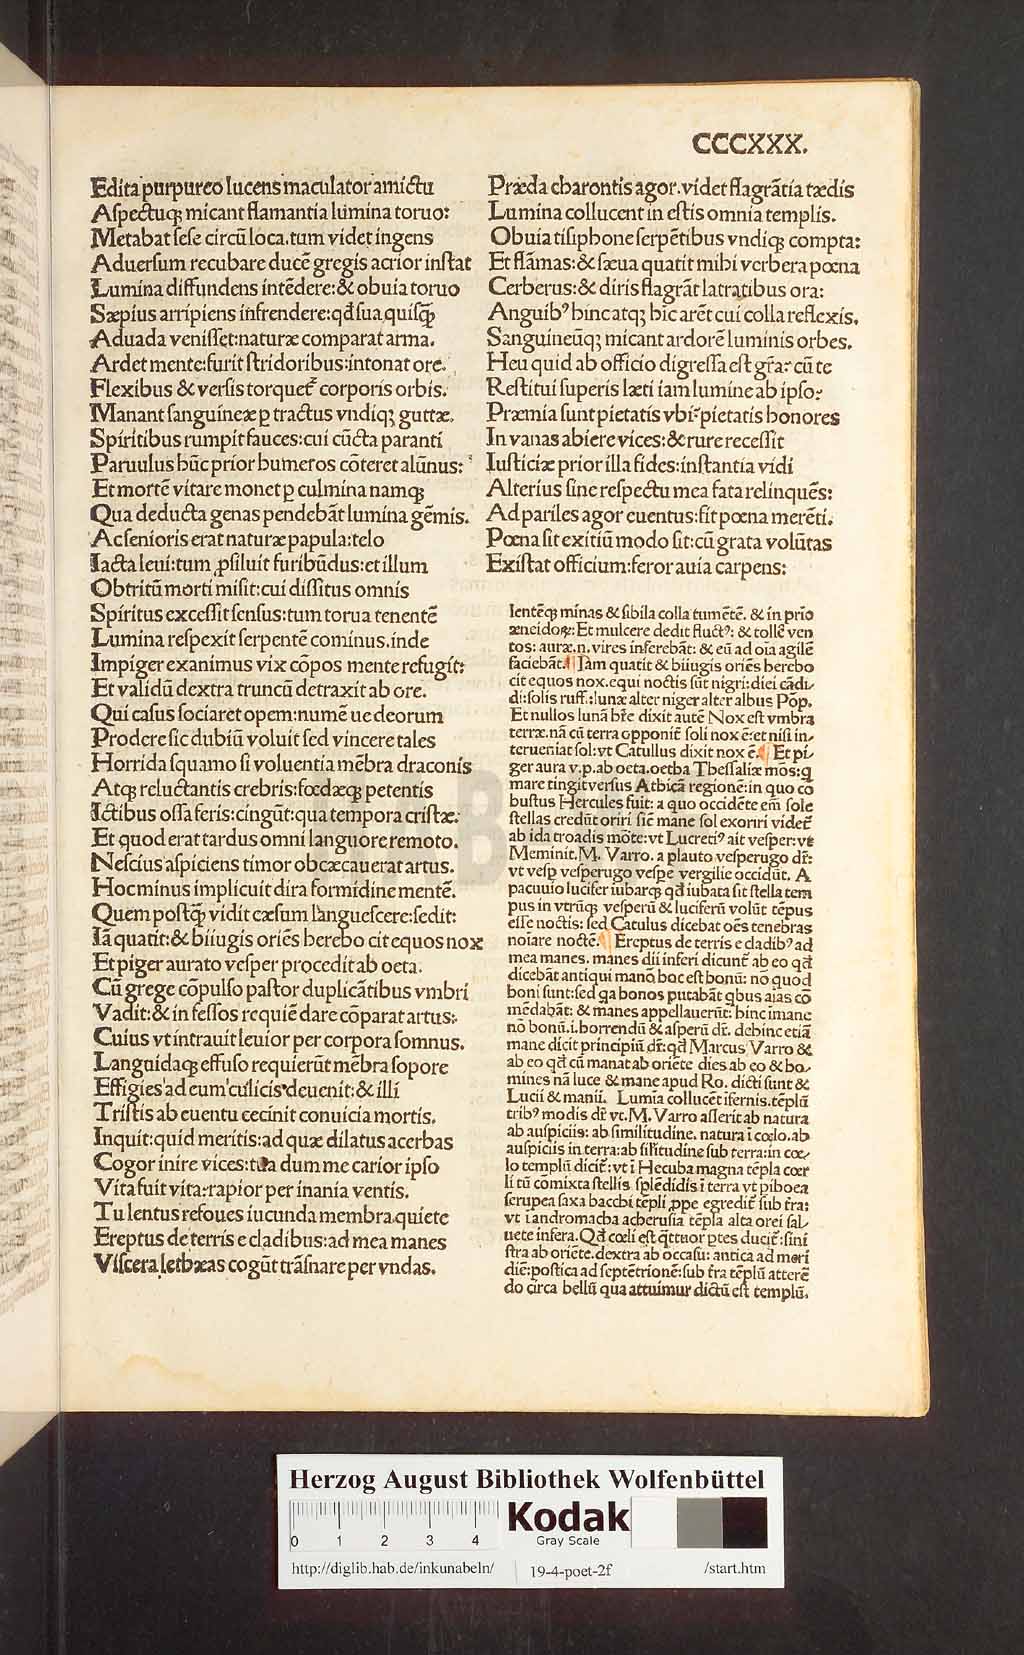 CCCXXX.
Edita purpureo lucens maculator amictu
Aspectuq; micant flamantia lumina toruo:
Metabat sese circũ loca.tum videt ingens
Aduersum recubare ducẽ gregis acrior instat
Lumina diffundens intẽdere:& obuia toruo
Sæpius arripiens infrendere:qđ sua quisq̃
Aduada venisset:naturæ comparat arma.
Ardet mente:furit stridoribus:intonat ore.
Flexibus & versis torquet᷑ corporis orbis.
Manant sanguineæ ꝑ tractus vndiq; guttæ.
Spiritibus rumpit fauces:cui cũcta paranti
Paruulus hũc prior humeros cõteret alũnus:
Et mortẽ vitare monet ꝑ culmina namq;
Qua deducta genas pendebãt lumina gẽmis.
Ac senioris erat naturæ papula:telo
Iacta leui:tum ꝓsiluit furibũdus:et illum
Obtritũ morti misit:cui dissitus omnis
Spiritus excessit sensus:tum torua tenentẽ
Lumina respexit serpentẽ cominus.inde
Impiger exanimus vix cõpos mente refugit:
Et validũ dextra truncũ detraxit ab ore.
Qui casus sociaret opem:numẽ ue deorum
Prodere sic dubiũ voluit sed vincere tales
Horrida squamo si voluentia mẽbra draconis
Atq; reluctantis crebris:fœdæq; petentis
Ictibus ossa feris:cingũt:qua tempora cristæ.
Et quod erat tardus omni languore remoto.
Nescius aspiciens timor obcæcauerat artus.
Hoc minus implicuit dira formidine mentẽ.
Quem postq̃ vidit cæsum languescere:sedit:
Iã quatit:& biiugis oriẽs herebo cit equos nox
Et piger aurato vesper procedit ab oeta.
Cũ grege cõpulso pastor duplicãtibus vmbri
Vadit:& in fessos requiẽ dare cõparat artus:.
Cuius vt intrauit leuior per corpora somnus.
Languidaq; effuso requierũt mẽbra sopore
Effigies ad eum culicis deuenit:& illi
Tristis ab euentu cecinit conuicia mortis.
Inquit:quid meritis:ad quæ dilatus acerbas
Cogor inire vices:tua dum me carior ipso
Vita fuit vita:rapior per inania ventis.
Tu lentus refoues iucunda membra quiete
Ereptus de terris e cladibus:ad mea manes
Viscera lethæas cogũt trãsnare per vndas.
Præda charontis agor.videt flagrãtia tædis
Lumina collucent in estis omnia templis.
Obuia tisiphone serpẽtibus vndiq; compta:
Et flãmas:& sæua quatit mihi verbera pœna
Cerberus:& diris flagrãt latratibus ora:
Anguibꝰ hinc atq; hic arẽt cui colla reflexis.
Sanguineũq; micant ardorẽ luminis orbes.
Heu quid ab officio digressa est gr̃a: cũ te
Restitui superis læti iam lumine ab ipso:
Præmia sunt pietatis vbi: pietatis honores
In vanas abiere vices:& rure recessit
Iusticiæ prior illa fides:instantia vidi
Alterius sine respectu mea fata relinquẽs:
Ad pariles agor euentus:fit pœna merẽti.
Pœna sit exitiũ modo sit:cũ grata volũtas
Existat officium:feror auia carpens:
lentẽq; minas & sibila colla tumẽtẽ. & in prĩo
æneidoꝝ: Et mulcere dedit fluctꝰ: & tollẽ ven
tos: auræ.n. vires inferebãt: & eũ ad oĩa agilẽ
faciebãt. Iam quatit & biiugis oriẽs herebo
cit equos nox. equi noctis sũt nigri: diei cãdi-
di: solis ruff.: lunæ alter niger alter albus Põp.
Et nullos lunã bre dixit autẽ Nox est vmbra
terræ.nã cũ terra opponit᷑ soli nox ẽ: et nisi in-
terueniat sol: vt Catullus dixit nox ẽ. Et pi-
ger aura v.p. ab oeta. oetha Thessaliæ mõs:q̃
mare tingit versus Athicã regionẽ: in quo cõ
bustus Hercules fuit: a quo occidẽte em̃ sole
stellas credũt oriri sic̃ mane sol exoriri videt᷑
ab ida troadis mõte: vt Lucretiꝰ ait vesper: vt
Meminit. M. Varro. a plauto vesperugo dr̃:
vt vesp vesperugo vespe vergilie occidũt. A
pacuuio lucifer iubarq; qđ iubata sit stella tem
pus in vtrũq; vesperũ & luciferũ volũt tẽpus
esse noctis: sed Catulus dicebat oẽs tenebras
noiare noctẽ. Ereptus de terris e cladibꝰ ad
mea manes. manes dii inferi dicunt᷑ ab eo qđ
dicebãt antiqui manõ hoc est bonũ: nõ quod
boni sunt: sed qa bonos putabãt qbus aias cõ
mẽdabãt: & manes appellauerũt: hinc imane
nõ bonũ.i. horrendũ & asperũ dr̃. dehinc etiã
mane dicit principiũ dr̃: qđ Marcus Varro &
ab eo qđ cũ manat ab oriẽte dies ab eo & ho-
mines nã luce & mane apud Ro. dicti sunt &
Lucii & manii. Lumia collucẽt ifernis. tẽplũ
tribꝰ modis dr̃ vt. M. Varro asserit ab natura
ab auspiciis: ab similitudine. natura ĩ cœlo. ab
auspiciis in terra: ab sil̃itudine sub terra: in cœ-
lo templũ dicit᷑: vt ĩ Hecuba magna tẽpla cœr
li tũ cõmixta stellis splẽdidis ĩ terra vt piboea
scrupea saxa bacchi tẽpli ꝓpe egredit᷑ sub tr̃a:
vt ĩ andromacha acherusia tẽpla alta orei sal-
uete infera. Qđ cœli est qttuor ptes ducit᷑: sini
stra ab oriẽte. dextra ab occasu: antica ad meri
diẽ: postica ad septẽtrionẽ: sub tr̃a tẽplũ atterẽ
do circa bellũ qua attuimur dictũ est templũ.
HAB
Herzog August Bibliothek Wolfenbüttel
0 1 2 3 4
Kodak
Gray Scale
http://diglib.hab.de/inkunabeln/ 19-4-poet-2f /start.htm